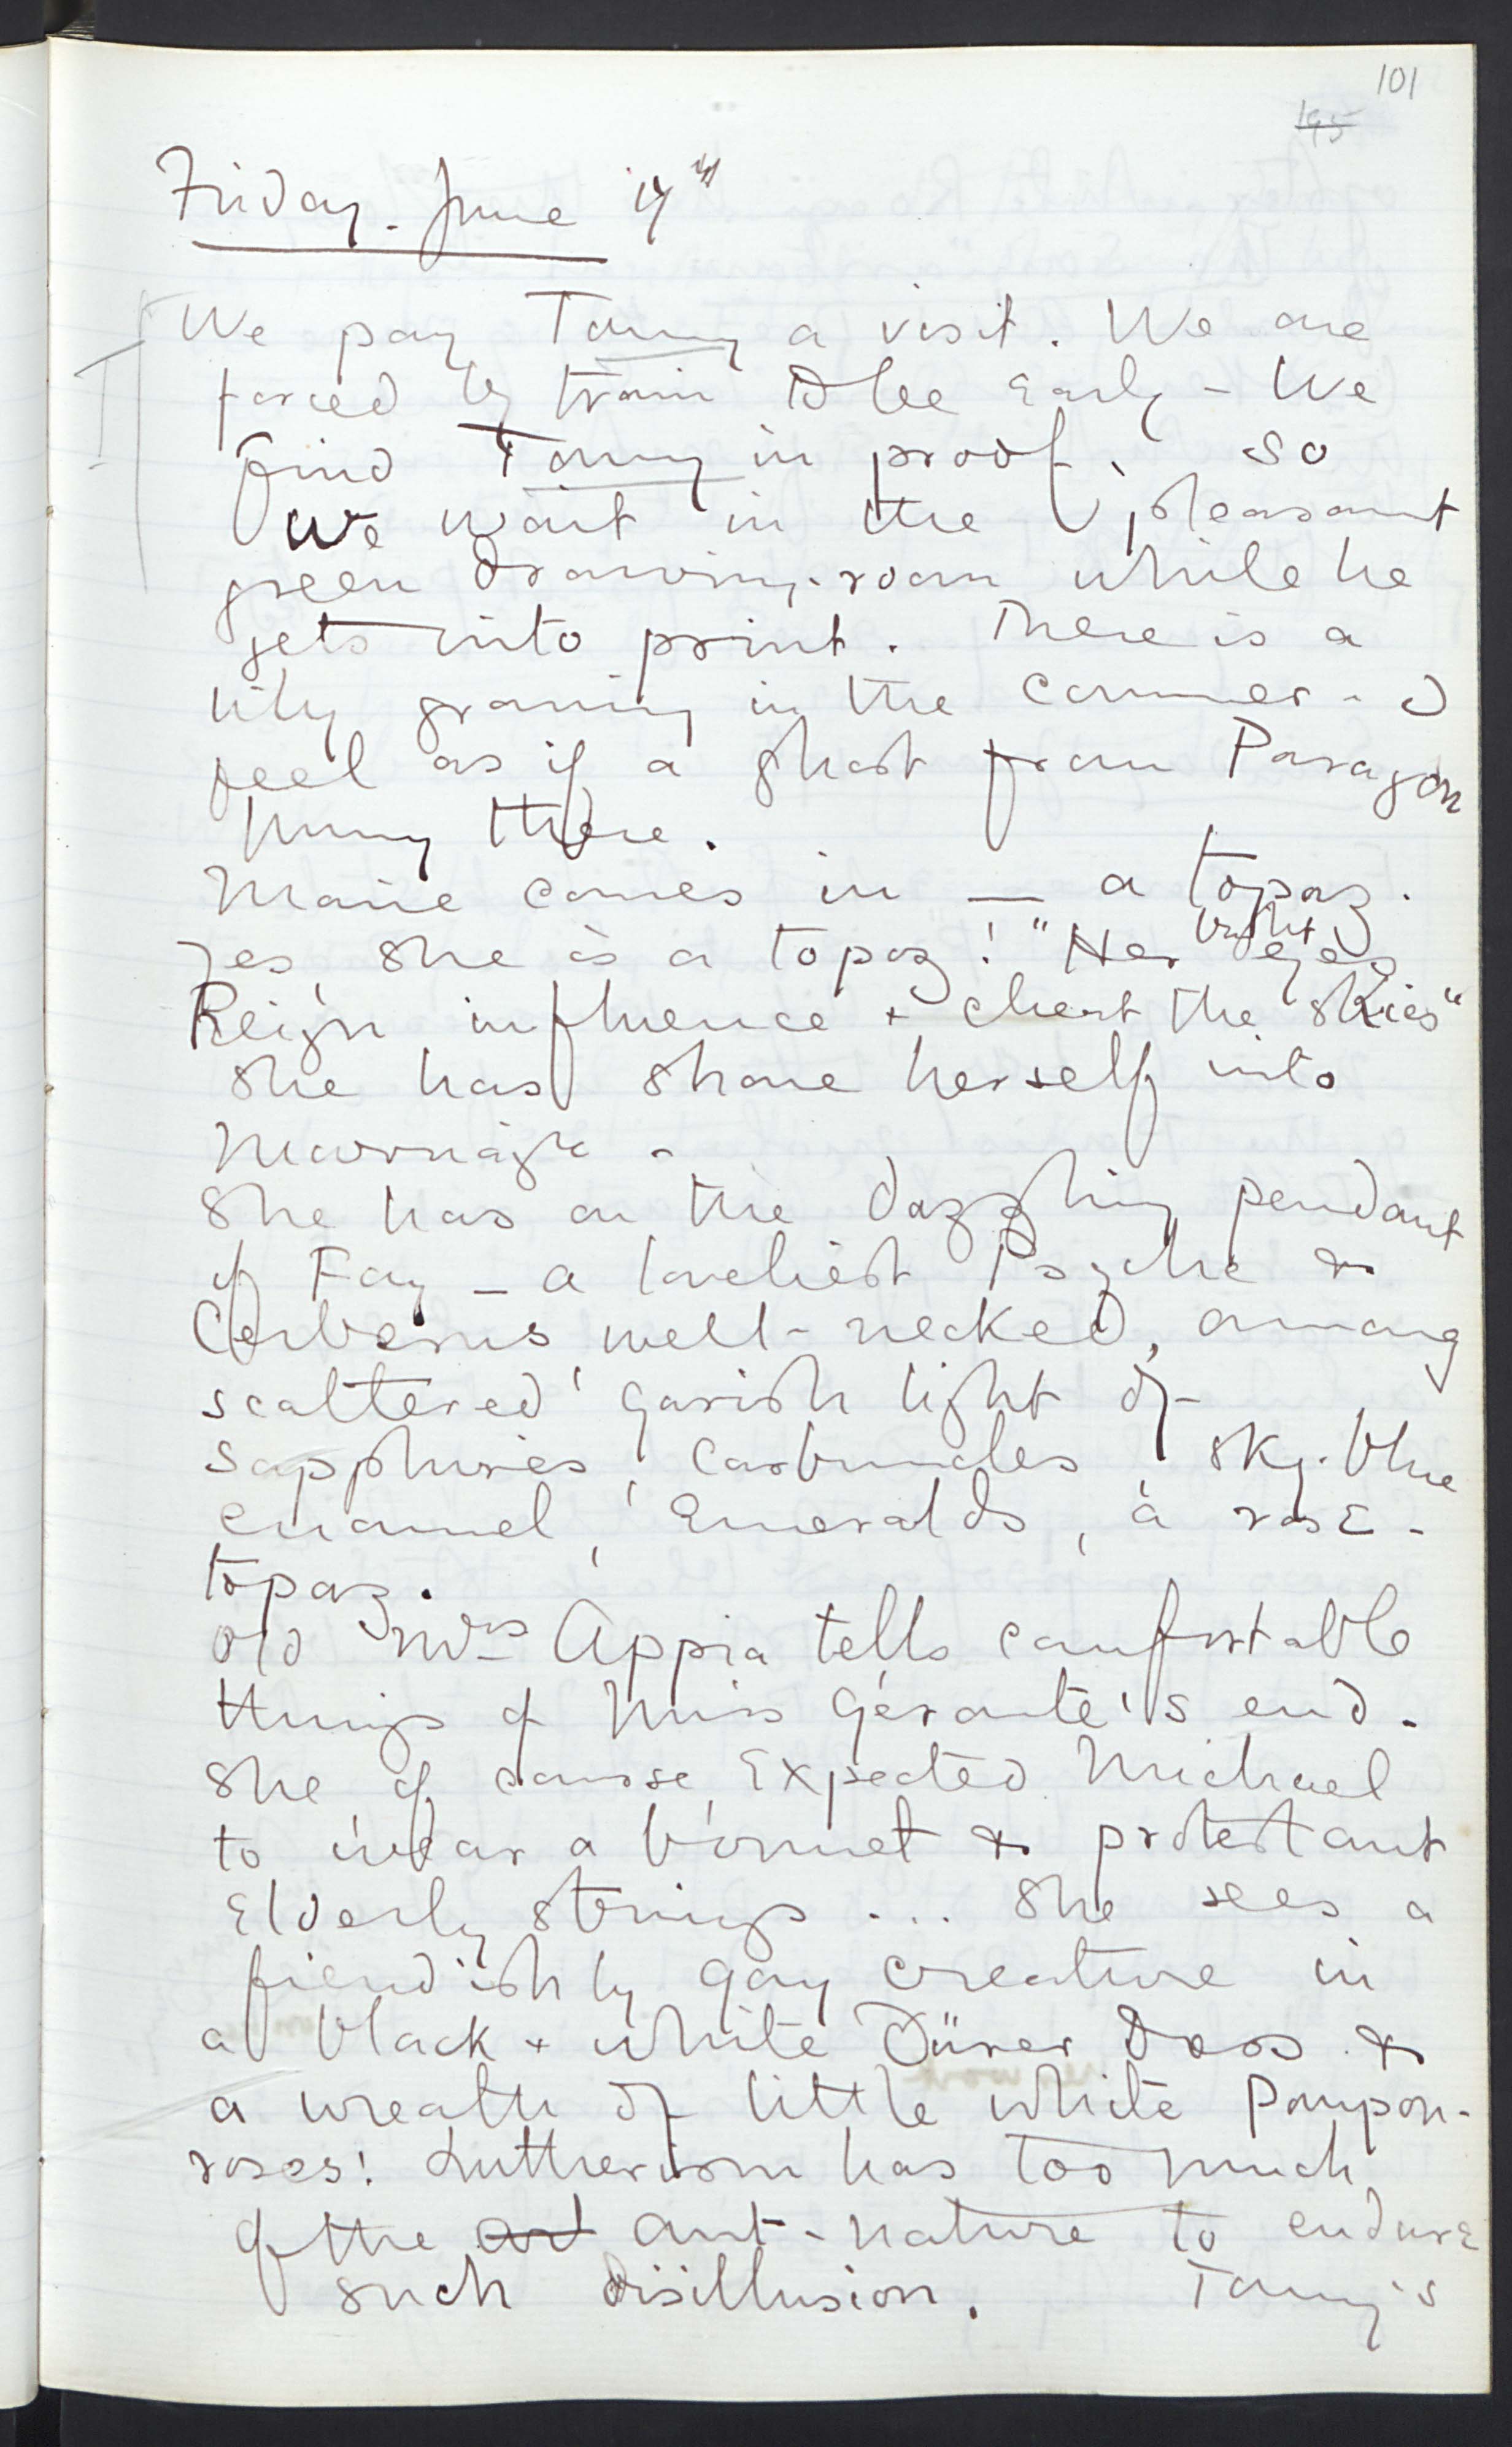 101
195
Friday. June 14th
We pay Tommy a visit. We are
forced by train to be early - We
find Tommy in proof. So
we wait in the pleasant
green drawing-room while he
gets into print. There is a
lily growing in the corner - I
feel as if a ghost from Paragon
hung there.
Marie comes in — a topaz.
Yes, she is a topaz! "Her bright eyes
Reign influence & cheat the skies"
She has shone herself into
marriage -
She has on the dazzling pendant
of Fay - a loveliest Psyche &
Cerberus well-necked, among
scattered garish light of
sapphires, carbuncles, sky-blue
enamel, emeralds, a rose-
topaz.
Old Mrs Appia tells comfortable
things of Miss Gérante's end.
She of course, expected Michael
to wear a bonnet & protestant
elderly strings ... She sees a
fiendishly gay creature in
a black & white Dürer dress &
a wreath of little white Pompon-
roses! Lutherism has too much
of the art ant-nature to endure
such disillusion. Tommy's